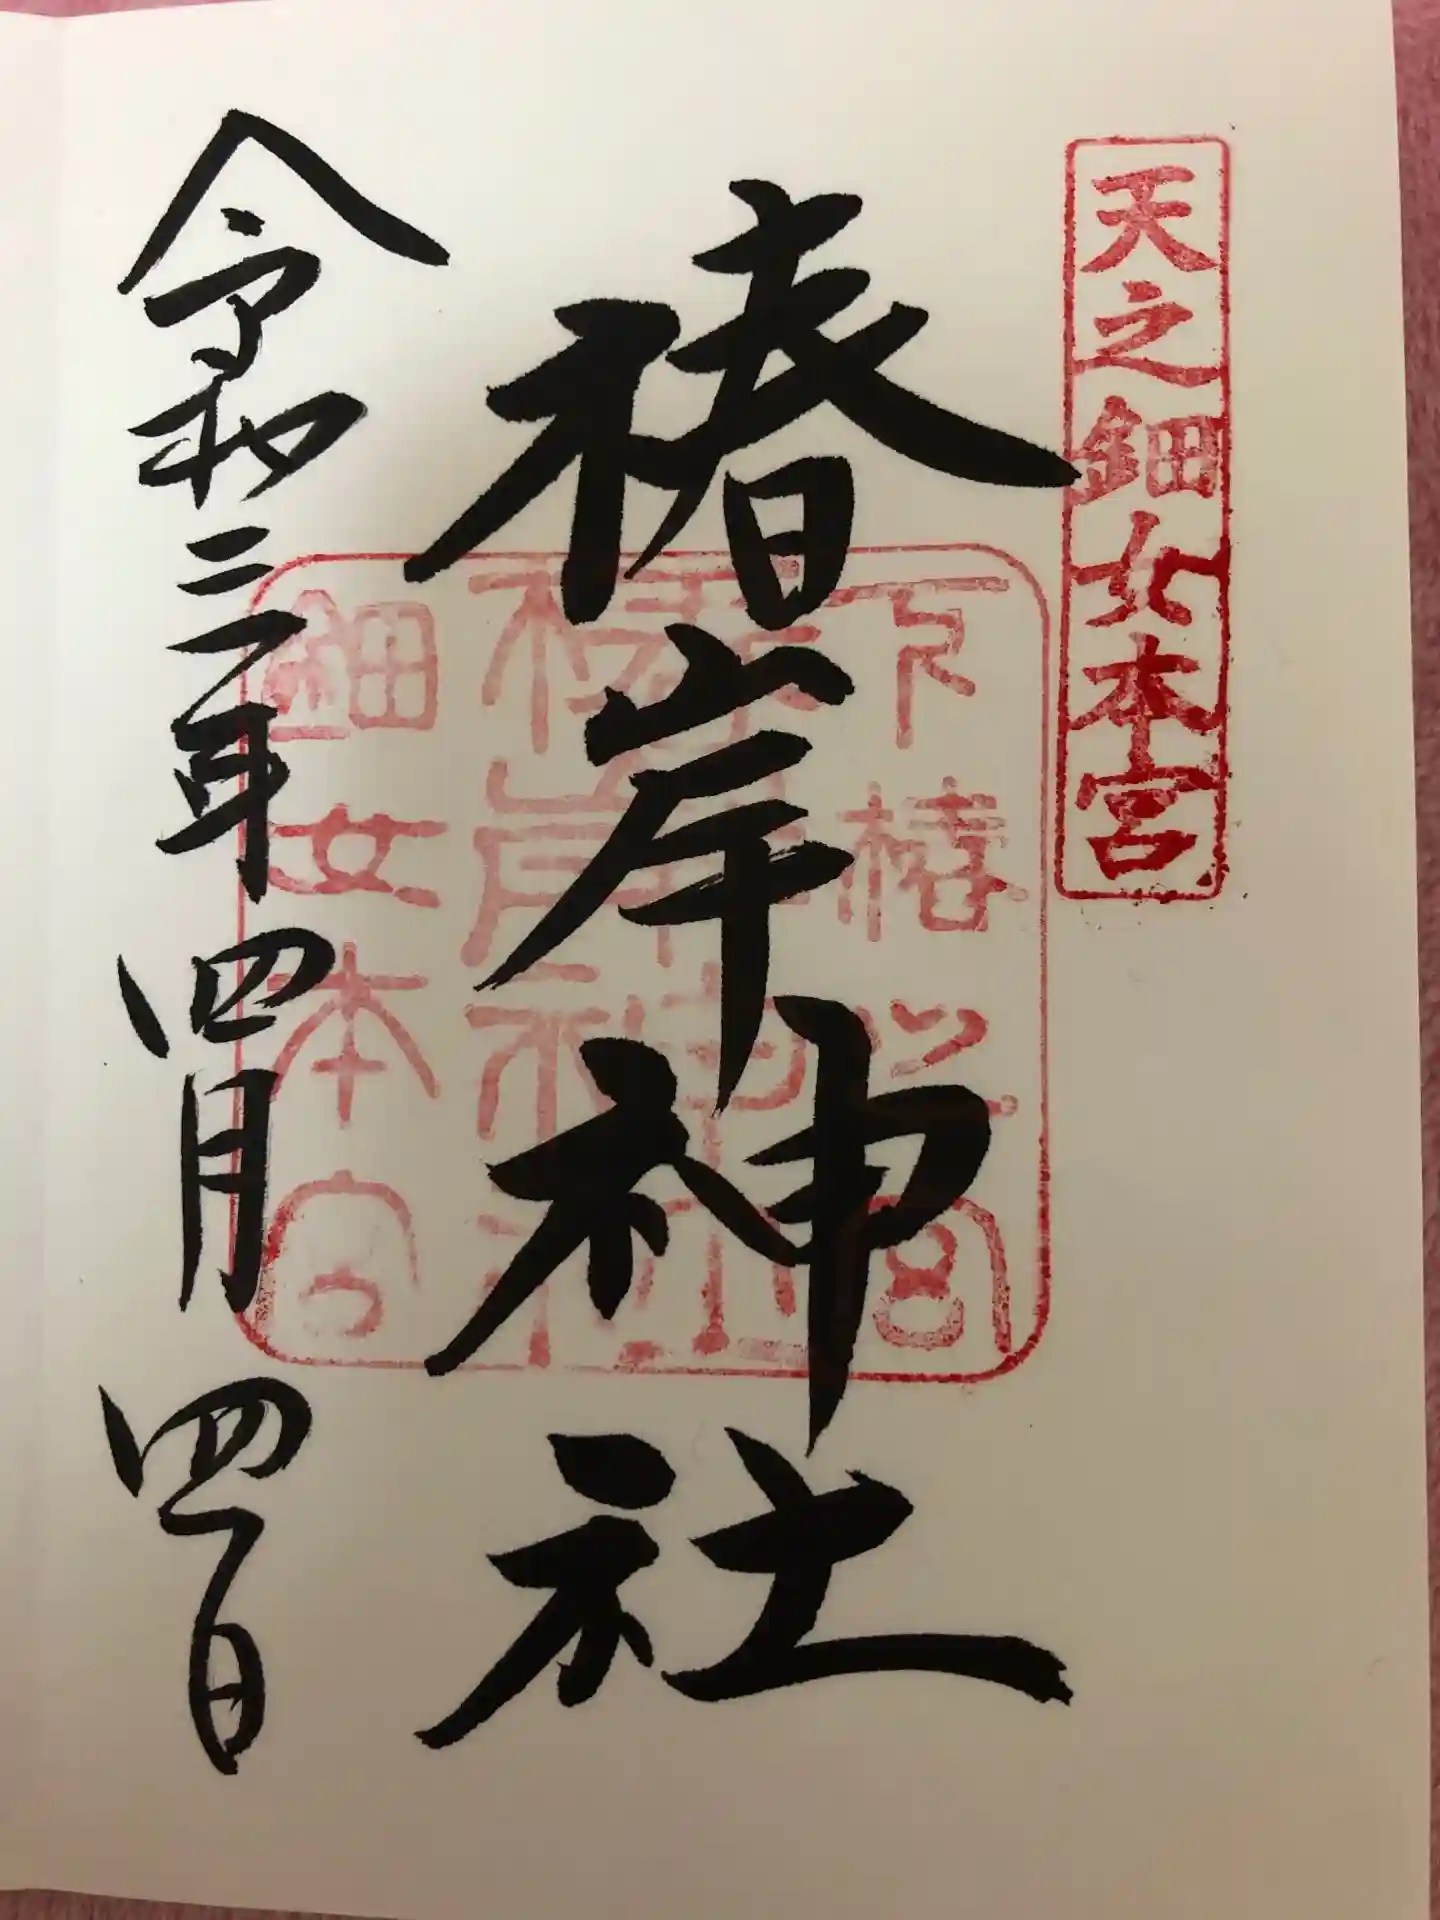 天之鈿女本宮
椿岸神社
下椿 宮
椿岸神社
鈿女本宮
令和三年四月四日